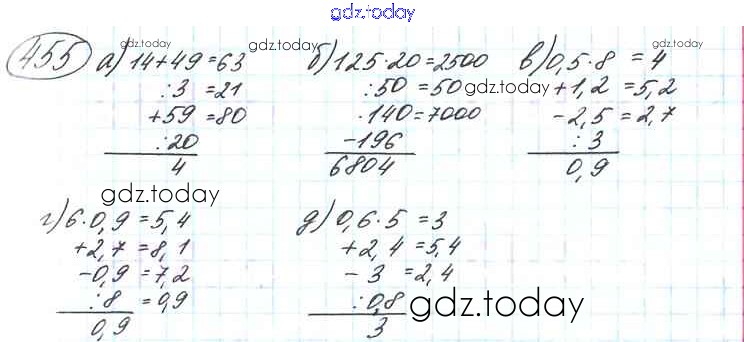 gdz.today
455 а) 14+49=63 gdz.today gdz.today б) 125·20=2500 в) 0,5·8 = 4
:3 =21 :50=50 gdz.today +1,2 =5,2
+59 =80 ·140=7000 -2,5=2,7
:20 -196 :3
4 6804 0,9
gdz.today
г) 6·0,9 =5,4 д) 0,6·5 =3
+2,7 =8,1 +2,4=5,4
-0,9 =7,2 -3 =2,4
:8 =0,9 :0,8 gdz.today
0,9 3